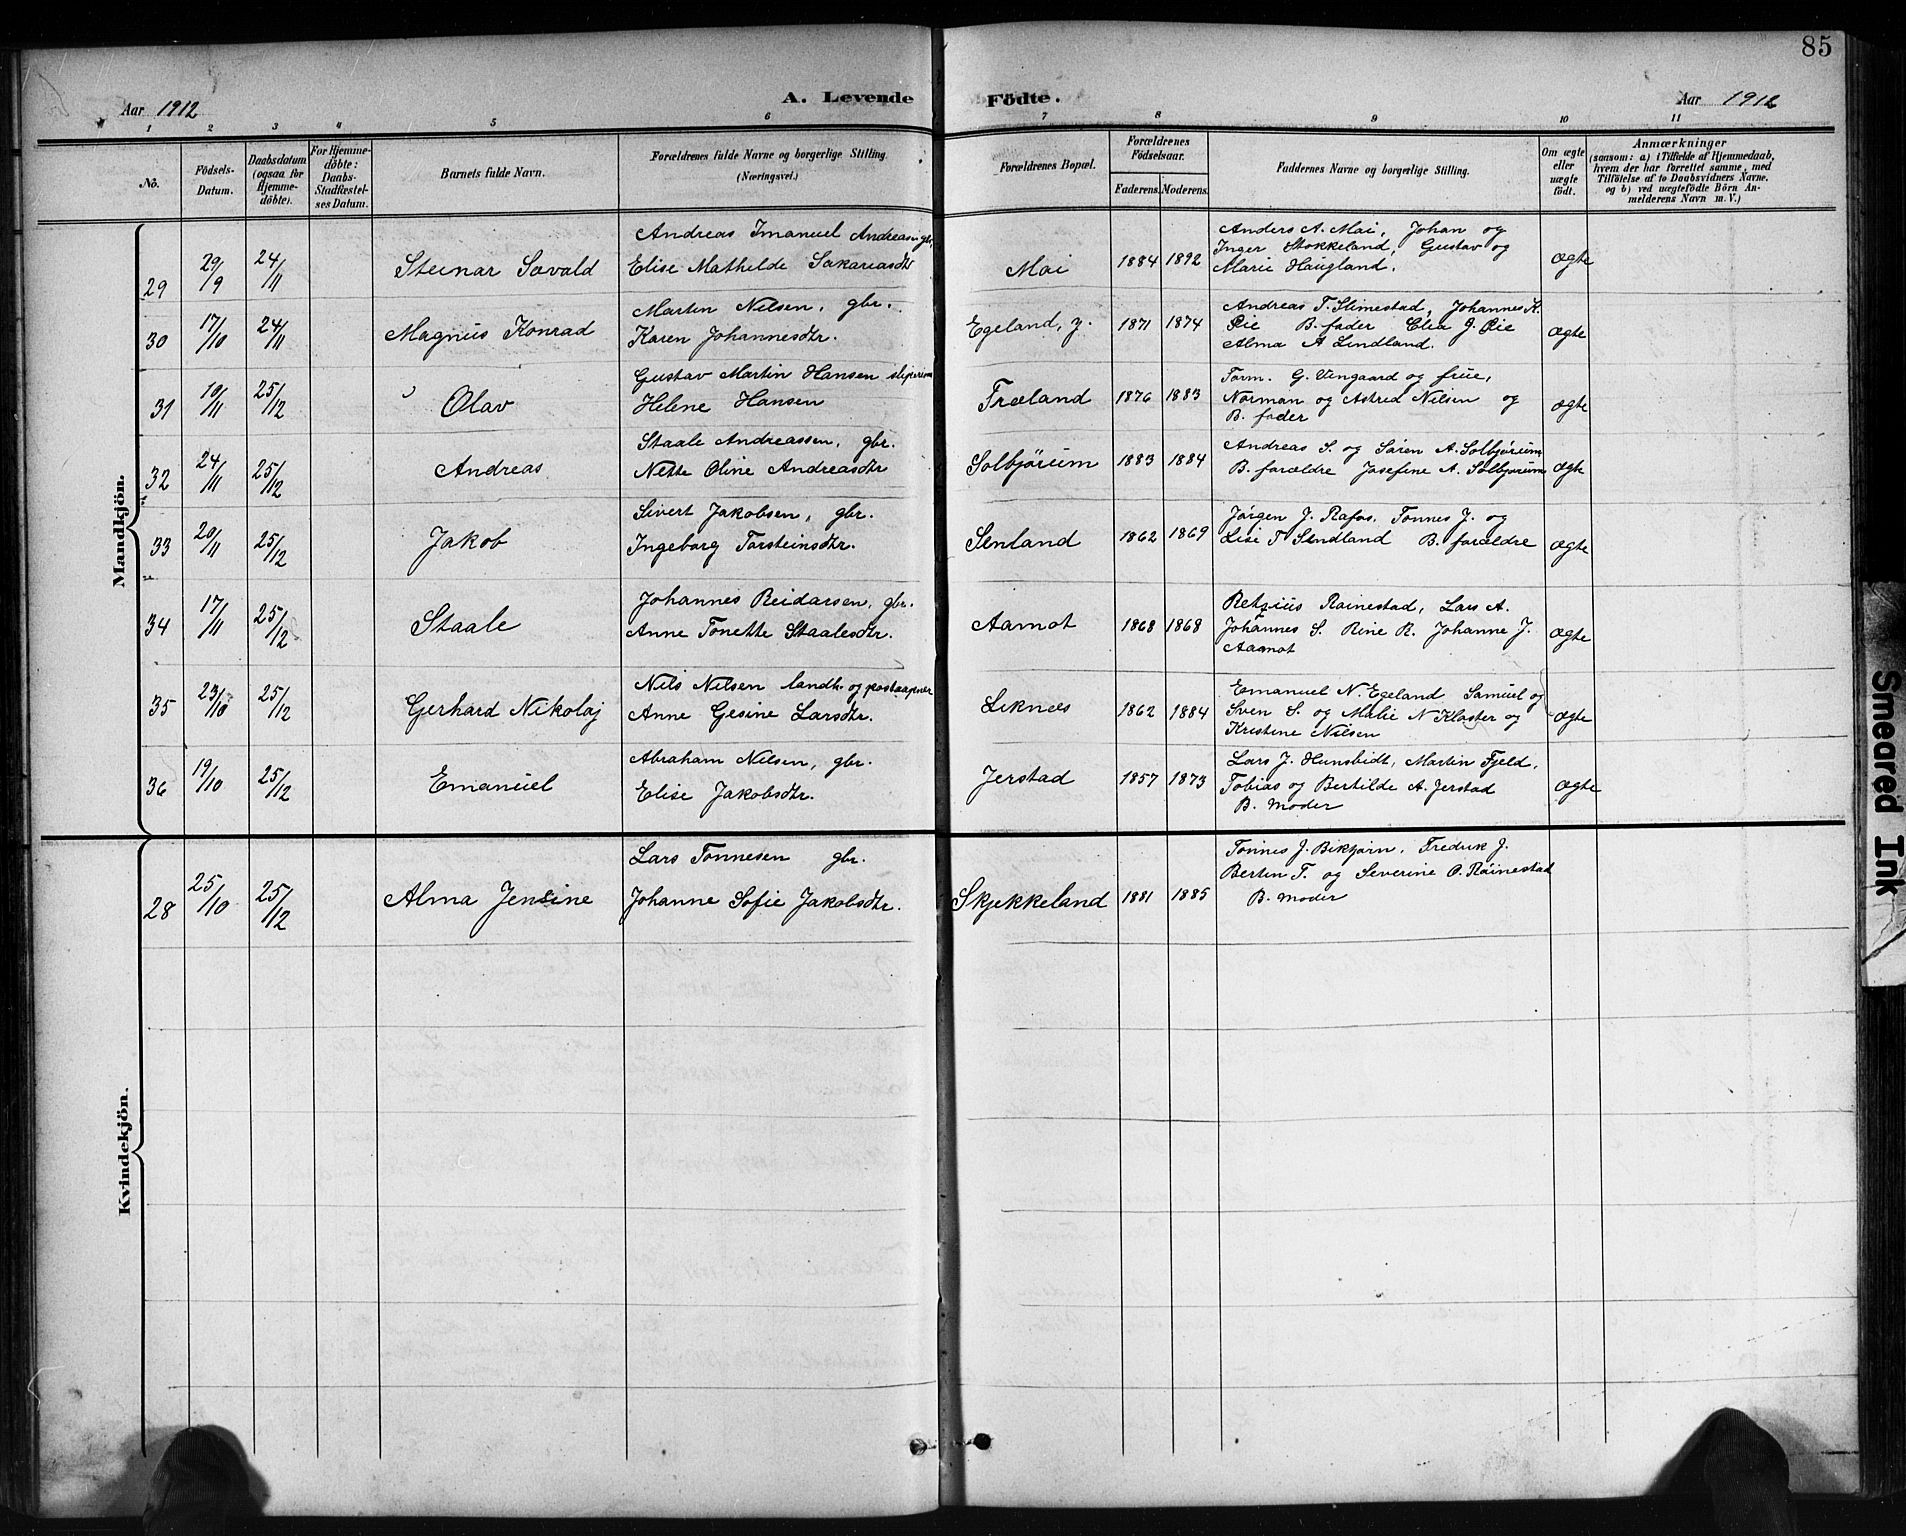 85
Aar 1912 A. Levende Födte. Aar 1912
1 2 3 4 5 6 7 8 9 10 11
No.
Födsels-Datum.
Daabsdatum (ogsaa for Hjemme-döbte).
For Hjemme-döbte: Daabs-Stadfestel-ses Datum.
Barnets fulde Navn.
Forældrenes fulde Navne og borgerlige Stilling. (Næringsvei.)
Forældrenes Bopæl.
Forældrenes Födselsaar.
Faderens. Moderens.
Faddernes Navne og borgerlige Stilling.
Om ægte eller uægte födt.
Anmærkninger
(saasom: a) i Tilfælde af Hjemmedaab, hvem der har forrettet samme, med Tilföielse af to Daabsvidners Navne, og b) ved uægtefödte Börn An-melderens Navn m. V.)
Mandkjön.
29 29/9 24/11 Steinar Sovald
Andreas Imanuel Andreasen gbr.
Elise Mathilde Sakariasdtr
Moi 1884 1892
Anders A. Moi, Johan og
Inger Stokkeland, Gustav og
Marie Haugland.
Ægte
30 17/10 24/11 Magnus Konrad
Martin Nilsen, gbr.
Karen Johannesdtr.
Egeland, y. 1871 1874
Andreas T. Slimestad, Johannes K.
Øie B. fader Elia J. Øie
Alma A Lindland.
Ægte
31 10/11 25/12 Olav
Gustav Martin Hansen
Helene Hansen
Træland 1876 1883
Torm. G. Vengaard og frue,
Norman og Astrid Nilsen og
B. fader
Ægte
32 24/11 25/12 Andreas
Staale Andreassen, gbr.
Nette Oline Andreasdtr
Solbjørum 1883 1884
Andreas S. og Søren A. Solbjørum
B. forældre Josefine A. Solbjørum
Ægte
33 20/11 25/12 Jakob
Sivert Jakobsen, gbr.
Ingeborg Torsteinsdtr.
Sinland 1862 1869
Jørgen J. Rafos, Tonnes J. og
Lise T Sindland B. forældre
Ægte
34 17/11 25/12 Staale
Johannes Reidarsen, gbr.
Anne Tonette Staalesdtr.
Aamot 1868 1868
Retzius Rainestad, Lars A.
Johannes S. Rine R. Johanne J.
Aamot
Ægte
35 23/10 25/12 Gerhard Nikolaj
Nils Nilsen landh. og postaapner
Anne Gesine Larsdtr.
Liknes 1862 1884
Emanuel N. Egeland Samuel og
Sven S. og Malie N Kloster og
Kristine Nilsen
Ægte
36 19/10 25/12 Emanuel
Abraham Nilsen, gbr.
Elise Jakobsdtr.
Jerstad 1857 1873
Lars J. Hunsbidt, Martin Fjeld,
Tobias og Bertilde A. Jerstad
B. moder
Ægte
Kvindekjön.
28 25/10 25/12 Alma Jensine
Lars Tonnesen gbr.
Johanne Sofie Jakobsdtr.
Skjekkeland 1881 1885
Tønnes J. Birkjørn, Fredrik J.
Bertin T. og Severine O. Rainestad
B. moder
Smeared Ink